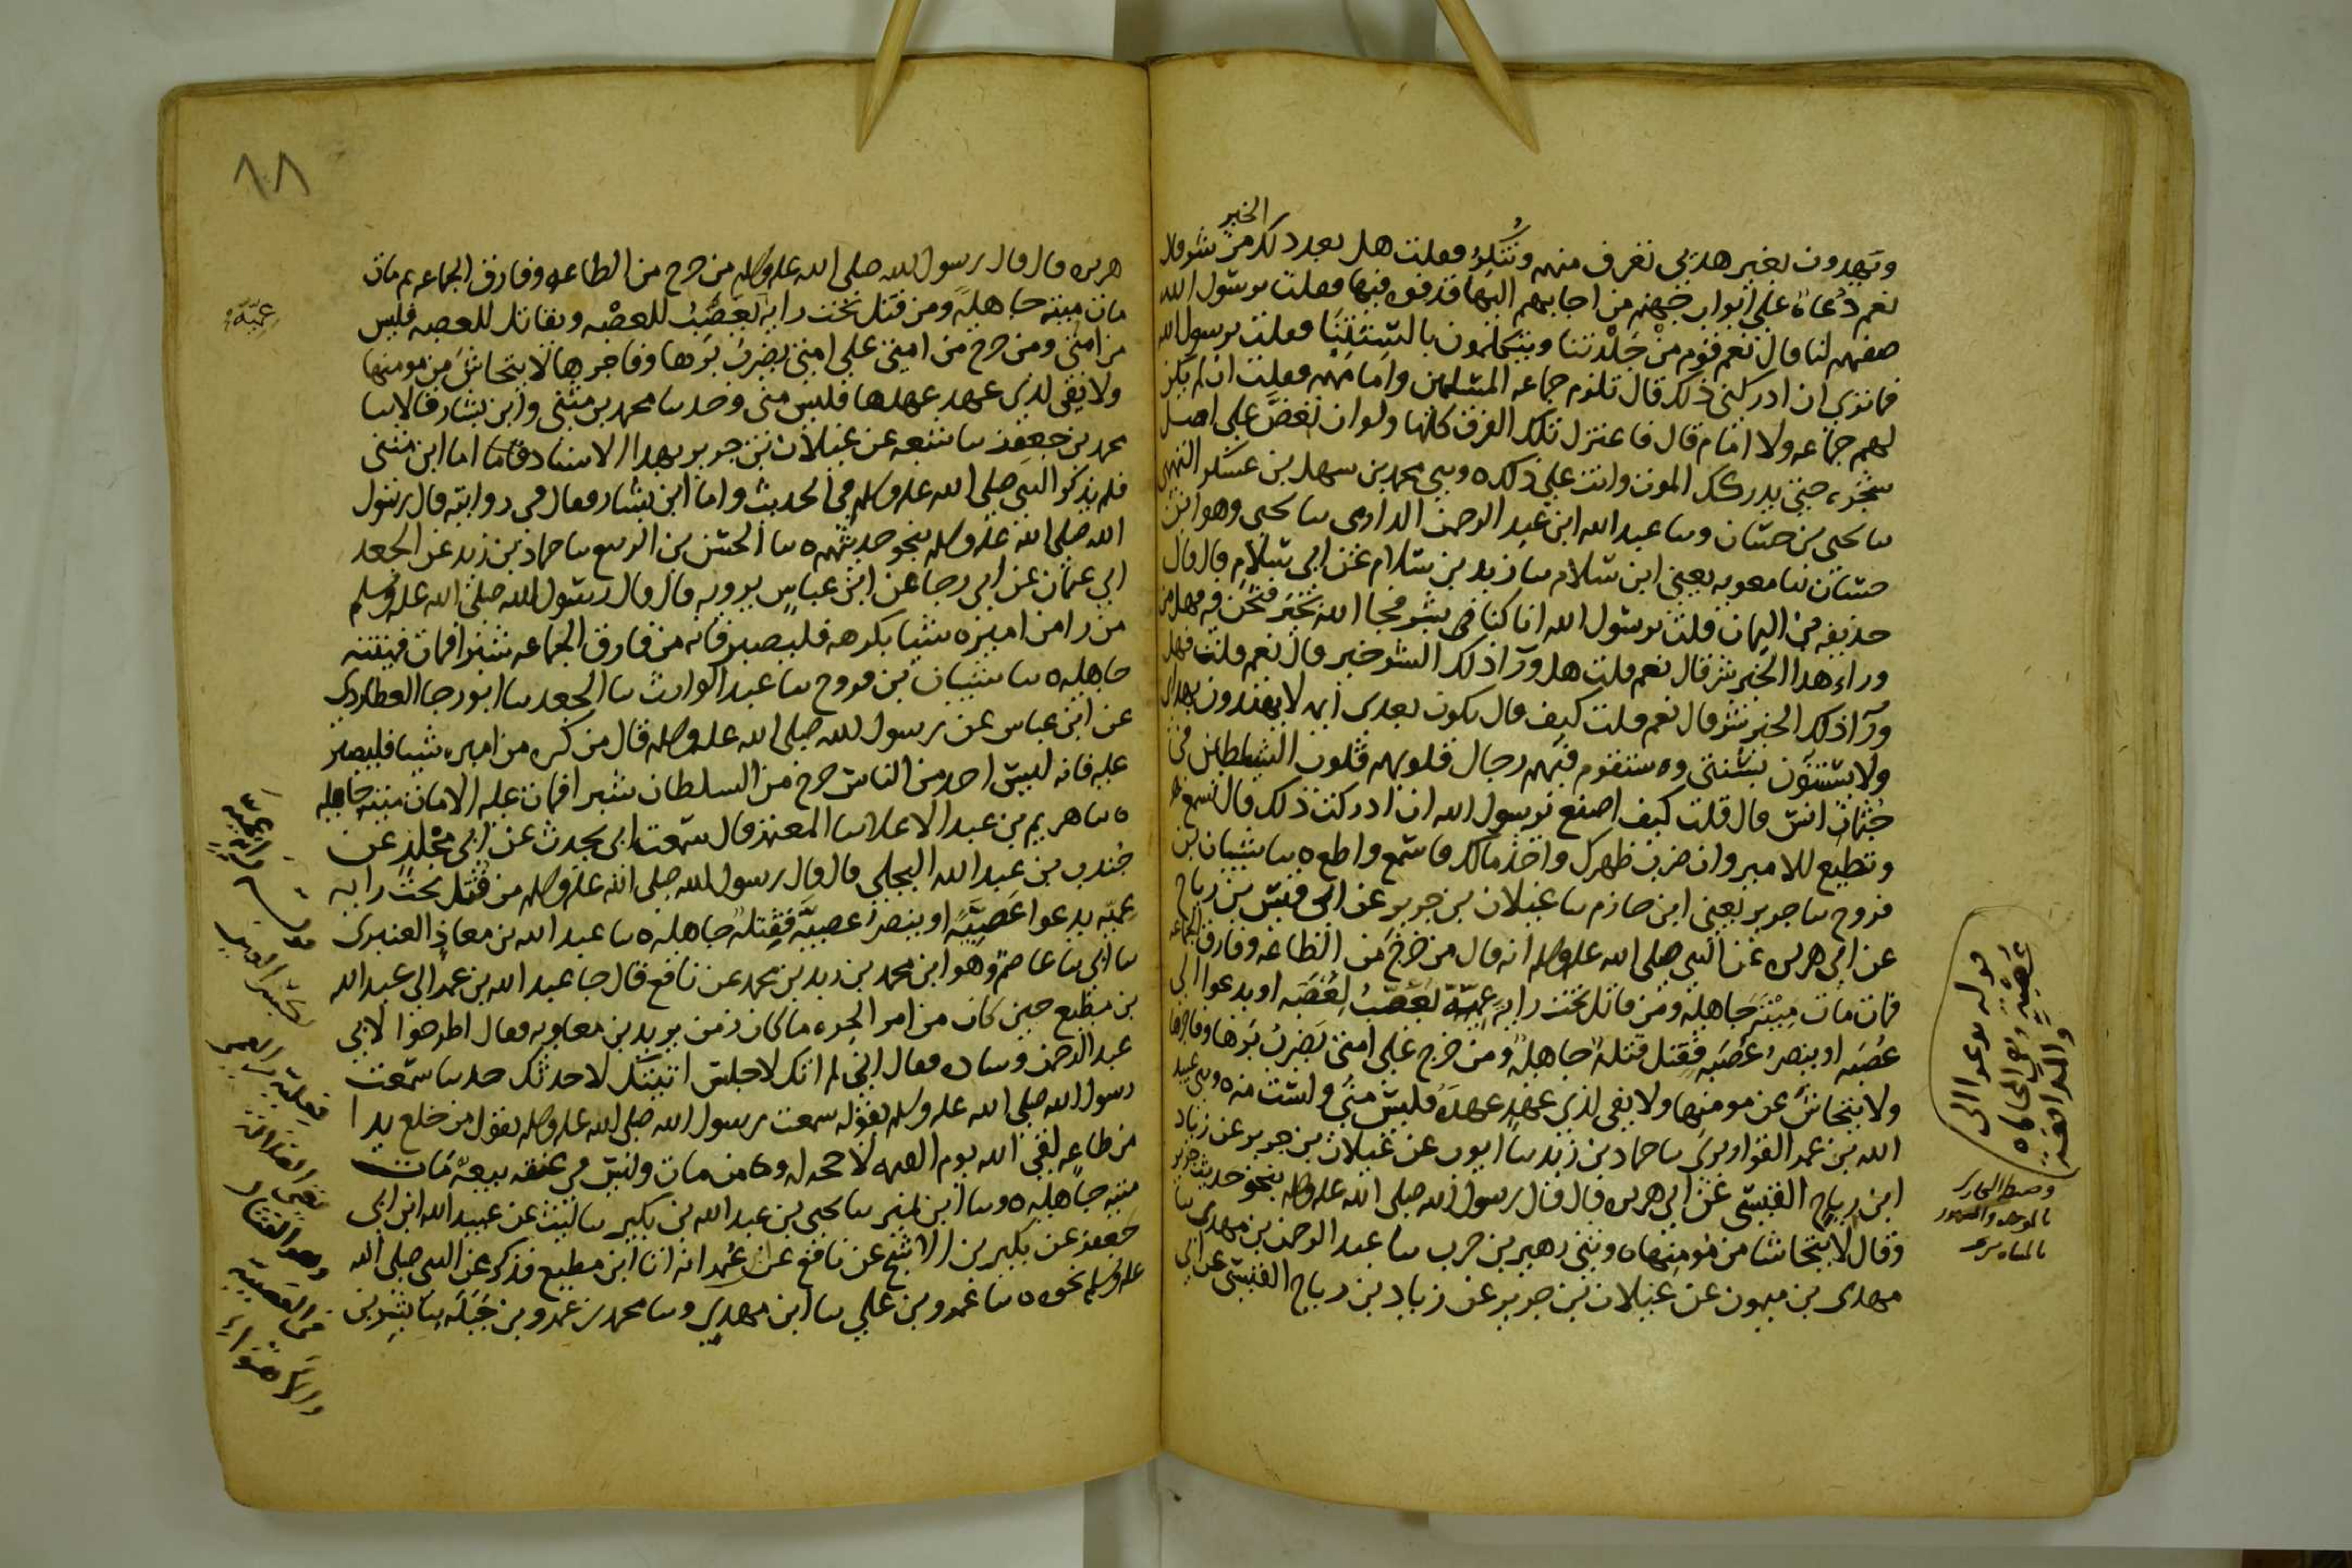 ويهدون بغير هديي تعرف منهم وتنكر فقلت هل بعد ذلك الخير من شر قال
نعم دعاة على ابواب جهنم من اجابهم اليها قذفوه فيها فقلت يرسول الله
صفهم لنا قال نعم قوم من جلدتنا ويتكلمون بالسنتنا فقلت يرسول الله
فما ترى ان ادركني ذلك قال تلزم جماعه المسلمين وامامهم فقلت ان لم يكن
لهم جماعه ولا امام قال فاعتزل تلك الفرق كلها ولو ان تعض على اصل
شجره حتى يدركك الموت وانت على ذلك ه وسي محمد بن سهل بن عسكر التميمي
سا يحيى بن حسان وسا عبد الله ابن عبد الرحمن الدارمي سا يحيى وهو ابن
حسان سا معويه يعني ابن سلام سا زيد بن سلام عن ابي سلام قال قال
حذيفه بن اليمان قلت يرسول الله انا كنا في بشر فجا الله بخير فنحن فيه فهل من
وراء هذا الخير شر قال نعم قلت هل ورآ ذلك الشر خير قال نعم قلت فهل
ورآ ذلك الخير شر قال نعم قلت كيف قال يكون بعدي ايمه لا يهتدون بهداي
ولا يستنون بسنتي ه وسيقوم فيهم رجال قلوبهم قلوب الشياطين في
جثمان انس قال قلت كيف اصنع يرسول الله ان ادركت ذلك قال تسمع
وتطيع للامير وان ضرب ظهرك واخذ مالك فاسمع واطع ه سا شيبان بن
فروح سا جرير يعني ابن حازم سا غيلان بن جرير عن ابي قيس بن رياح
عن ابي هريره عن النبي صلى الله عله وسلم انه قال من خرج من الطاعه وفارق الجماعه
فمات مات ميتة جاهلية ومن قاتل تحت راية عمية يغضب لعصبه او يدعوا الى
عصبه او ينصر عصبه فقتل فقتلة جاهلية ومن خرج على امتي يضرب برها وفاجرها
ولا يتحاش عن مومنها ولا يفي لذي عهد عهده فليس مني ولست منه ه وسي عبيد
الله بن عمر القواريري سا حماد بن زيد سا ايوب عن غيلان بن جرير عن زياد
ابن رياح القيسي عن ابي هريره قال قال رسول الله صلى الله عله وسلم بنحو حديث جرير
وقال لا يتحاشا من مومنها ه وسي زهير بن حرب سا عبد الرحمن بن مهدي سا
مهدي بن ميمون عن غيلان بن جرير عن زياد بن رياح القيسي عن ابي
قوله يدعوا الى
عصبية
والمدافعة
١٨
هريره قال قال رسول الله صلى الله عله وسلم من خرج من الطاعه وفارق الجماعه ثم مات
مات ميتة جاهلية ومن قتل تحت راية يغضب للعصبه ويقاتل للعصبه فليس
من امتي ومن خرج من امتي على امتي يضرب برها وفاجرها لا يتحاش من مومنها
ولا يفي لذي عهد عهدها فليس مني وحدسا محمد بن مثنى وابن بشار قالا سا
محمد بن جعفر سا شعبه عن غيلان بن جرير بهذا الاسناد فاما اما ابن مثنى
فلم يذكر النبي صلى الله عله وسلم في الحديث واما ابن بشار فقال في روايته قال رسول
الله صلى الله عله وسلم بنحو حديثهم ه سا الحسن بن الربيع سا حماد بن زيد عن الجعد
ابي عثمان عن ابي رجا عن ابن عباس يرويه قال قال رسول الله صلى الله عله وسلم
من را من اميره شيا يكرهه فليصبر فانه من فارق الجماعه شبرا فمات فميتته
جاهليه ه سا شيبان بن فروح سا عبد الوارث سا الجعد سا ابو رجا العطاردي
عن ابن عباس عن رسول الله صلى الله عله وسلم قال من كره من اميره شيا فليصبر
عليه فانه ليس احد من الناس خرج من السلطان شبرا فمات عليه الا مات ميتة جاهليه
ه سا هريم بن عبد الاعلا سا المعتمر قال سمعت ابي يحدث عن ابي مجلز عن
جندب بن عبد الله البجلي قال قال رسول الله صلى الله عله وسلم من قتل تحت راية
عمية يدعوا عصبية او ينصر عصبية فقتلة جاهليه ه سا عبيد الله بن معاذ العنبري
سا ابي سا عاصم وهو ابن محمد بن زيد بن محمد عن نافع قال جا عبد الله بن عمر الى عبد الله
بن مطيع حين كان من امر الحره ما كان زمن يزيد بن معاويه فقال اطرحوا لابي
عبد الرحمن وساده فقال اني لم اتك لاجلس اتيتك لاحدثك حديثا سمعت
رسول الله صلى الله عله وسلم يقوله سمعت رسول الله صلى الله عله وسلم يقول من خلع يدا
من طاعه لقي الله يوم القيمه لا حجه له ه ومن مات وليس في عنقه بيعة مات
ميتة جاهليه ه وسا ابن نمير سا يحيى بن عبد الله بن بكير سا ليث عن عبيد الله ابن ابي
جعفر عن بكير بن الاشج عن نافع عن ابن عمر انه اتا ابن مطيع فذكر عن النبي صلى الله
عله وسلم نحوه ه سا عمرو بن علي سا ابن مهدي وسا محمد بن عمرو بن جبله سا بشر بن
عمية